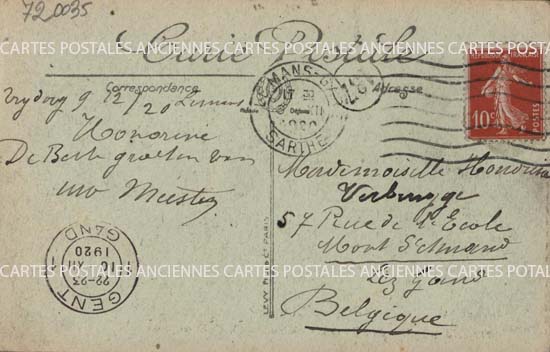 72 0035
Carte Postale
CARTES POSTALES ANCIENNES CARTES POSTALES ANCIENNES CARTES POSTALES ANCIENNES
Correspondance
Adresse
LE MANS-GARE
SARTHE
RÉPUBLIQUE FRANÇAISE
10c
POSTES
Vrydag 9/12/20 Lemans
Honorine
De Beste groeten van
uw Meester
Mademoiselle Honorine
Verbrugge
57 Rue de l'Ecole
Mont St Amand
Lez Gand
Belgique
GENT
22-23
10 XII
1920
GAND
LEVY FILS ET PARIS